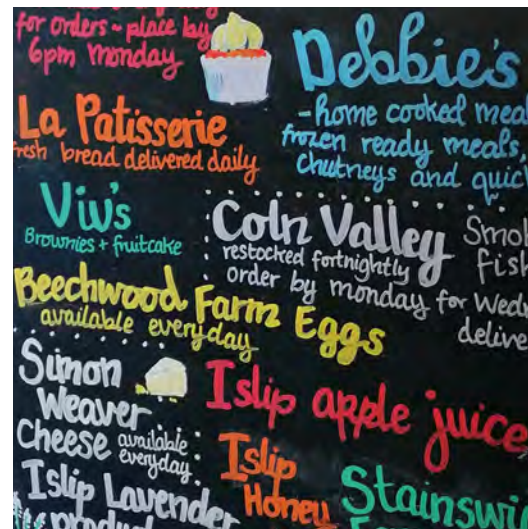 for orders ~ place by
6pm monday
Debbie's
-home cooked
frozen ready meals,
chutneys and
La Patisserie
fresh bread delivered daily
Viv's
Brownies + fruitcake
Coln Valley
restocked fortnightly
order by monday for
Beechwood Farm Eggs
available everyday
Simon
Weaver
Cheese available
everyday
Islip apple juice
Islip
Honey
Islip Lavender